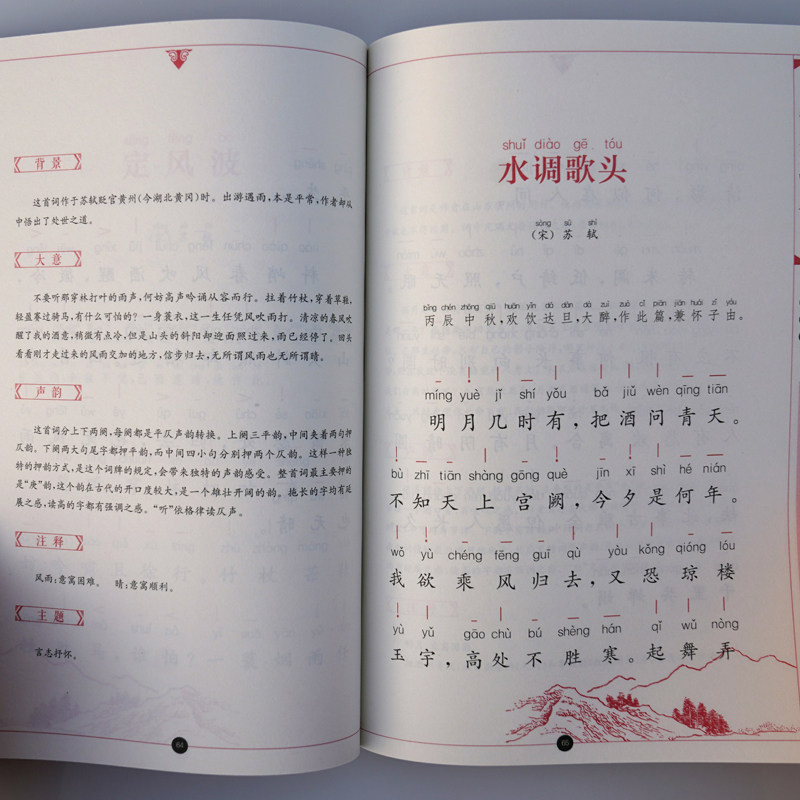 背景
这首词作于苏轼贬官黄州(今湖北黄冈)时。出游遇雨,本是平常,作者却从
中悟出了处世之道。
大意
不要听那穿林打叶的雨声,何妨高声吟诵从容而行。拄着竹杖,穿着草鞋,
轻盈赛过骑马,有什么可怕的?一身蓑衣,这一生任凭风吹雨打。清凉的春风吹
醒了我的酒意,稍微有点冷,但是山头的斜阳却迎面照过来,雨已经停了。回头
看看刚才走过来的风雨交加的地方,信步归去,无所谓风雨也无所谓晴。
声韵
这首词分上下两阕,每阕都是平仄声韵转换。上阕三平韵,中间夹着两句押
仄韵。下阕两大句尾字都押平韵,而中间四小句分别押两个仄韵。这样一种独
特的押韵方式,是这个词牌的规定,会带来独特的声韵感受。整首词最主要押的
是“庚”韵,这个韵在古代的开口度较大,是一个雄壮开阔的韵。拖长的字均有延
展之感,读高的字都有强调之感。“听”依格律读仄声。
注释
风雨:意寓困难。 晴:意寓顺利。
主题
言志抒怀。
64
shuǐ diào gē tóu
水调歌头
sòng sū shì
(宋)苏 轼
bǐng chén zhōng qiū huān yǐn dá dàn dà zuì zuò cǐ piān jiān huái zǐ yóu
丙辰中秋,欢饮达旦,大醉,作此篇,兼怀子由。
míng yuè jǐ shí yǒu bǎ jiǔ wèn qīng tiān
明月几时有,把酒问青天。
bù zhī tiān shàng gōng què jīn xī shì hé nián
不知天上宫阙,今夕是何年。
wǒ yù chéng fēng guī qù yòu kǒng qióng lóu
我欲乘风归去,又恐琼楼
yù yǔ gāo chù bú shèng hán qǐ wǔ nòng
玉宇,高处不胜寒。起舞弄
65